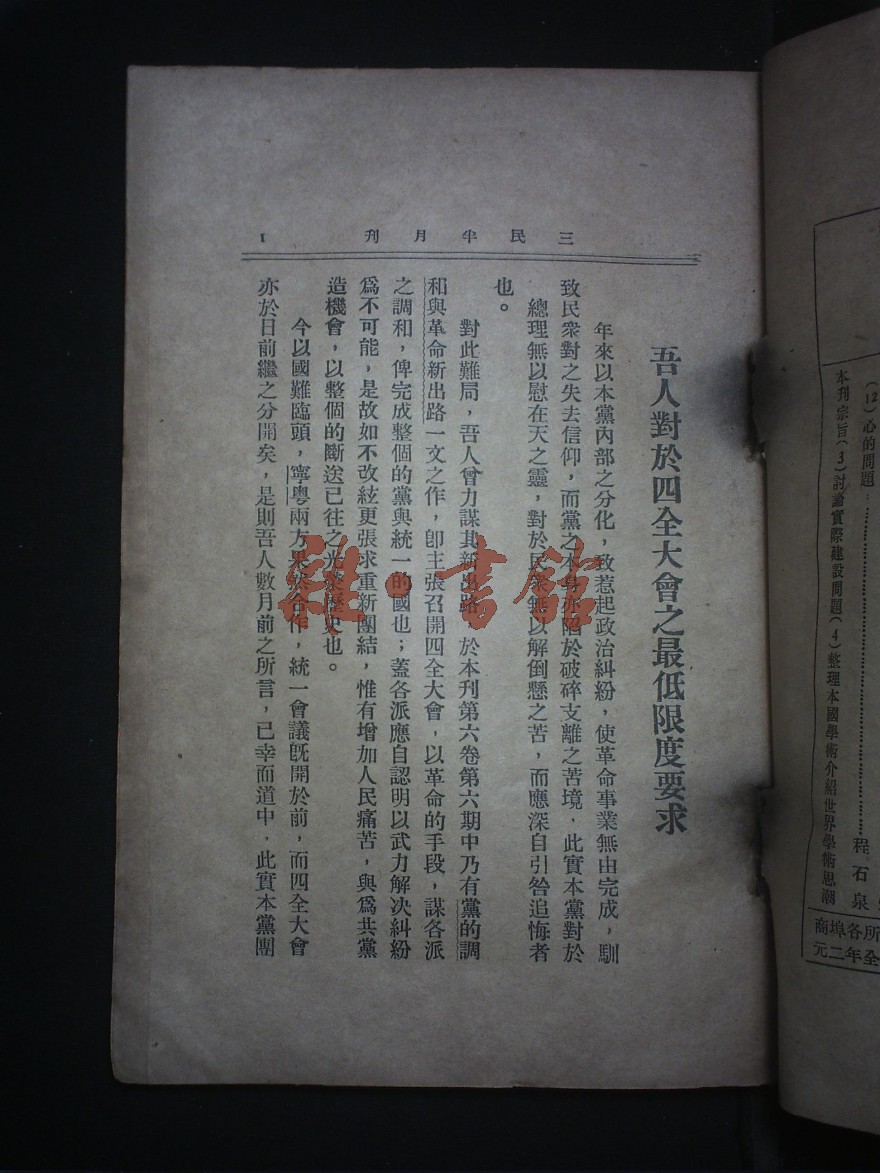 三民半月刊
1
吾人對於四全大會之最低限度要求
年來以本黨內部之分化，致惹起政治糾紛，使革命事業無由完成，馴
致民衆對之失去信仰，而黨之本身亦陷於破碎支離之苦境，此實本黨對於
總理無以慰在天之靈，對於民衆無以解倒懸之苦，而應深自引咎追悔者
也。
對此難局，吾人曾力謀其新出路，於本刊第六卷第六期中乃有黨的調
和與革命新出路一文之作，卽主張召開四全大會，以革命的手段，謀各派
之調和，俾完成整個的黨與統一的國也；蓋各派應自認明以武力解决糾紛
爲不可能，是故如不改絃更張求重新團結，惟有增加人民痛苦，與爲共黨
造機會，以整個的斷送已往之光榮歷史也。
今以國難臨頭，寧粤兩方果然合作，統一會議旣開於前，而四全大會
亦於日前繼之分開矣，是則吾人數月前之所言，已幸而道中，此實本黨團
(12)心的問題
程石泉
本刊宗旨(3)討論實際建設問題(4)整理本國學術介紹世界學術思潮
所各埠商
全年二元
書館